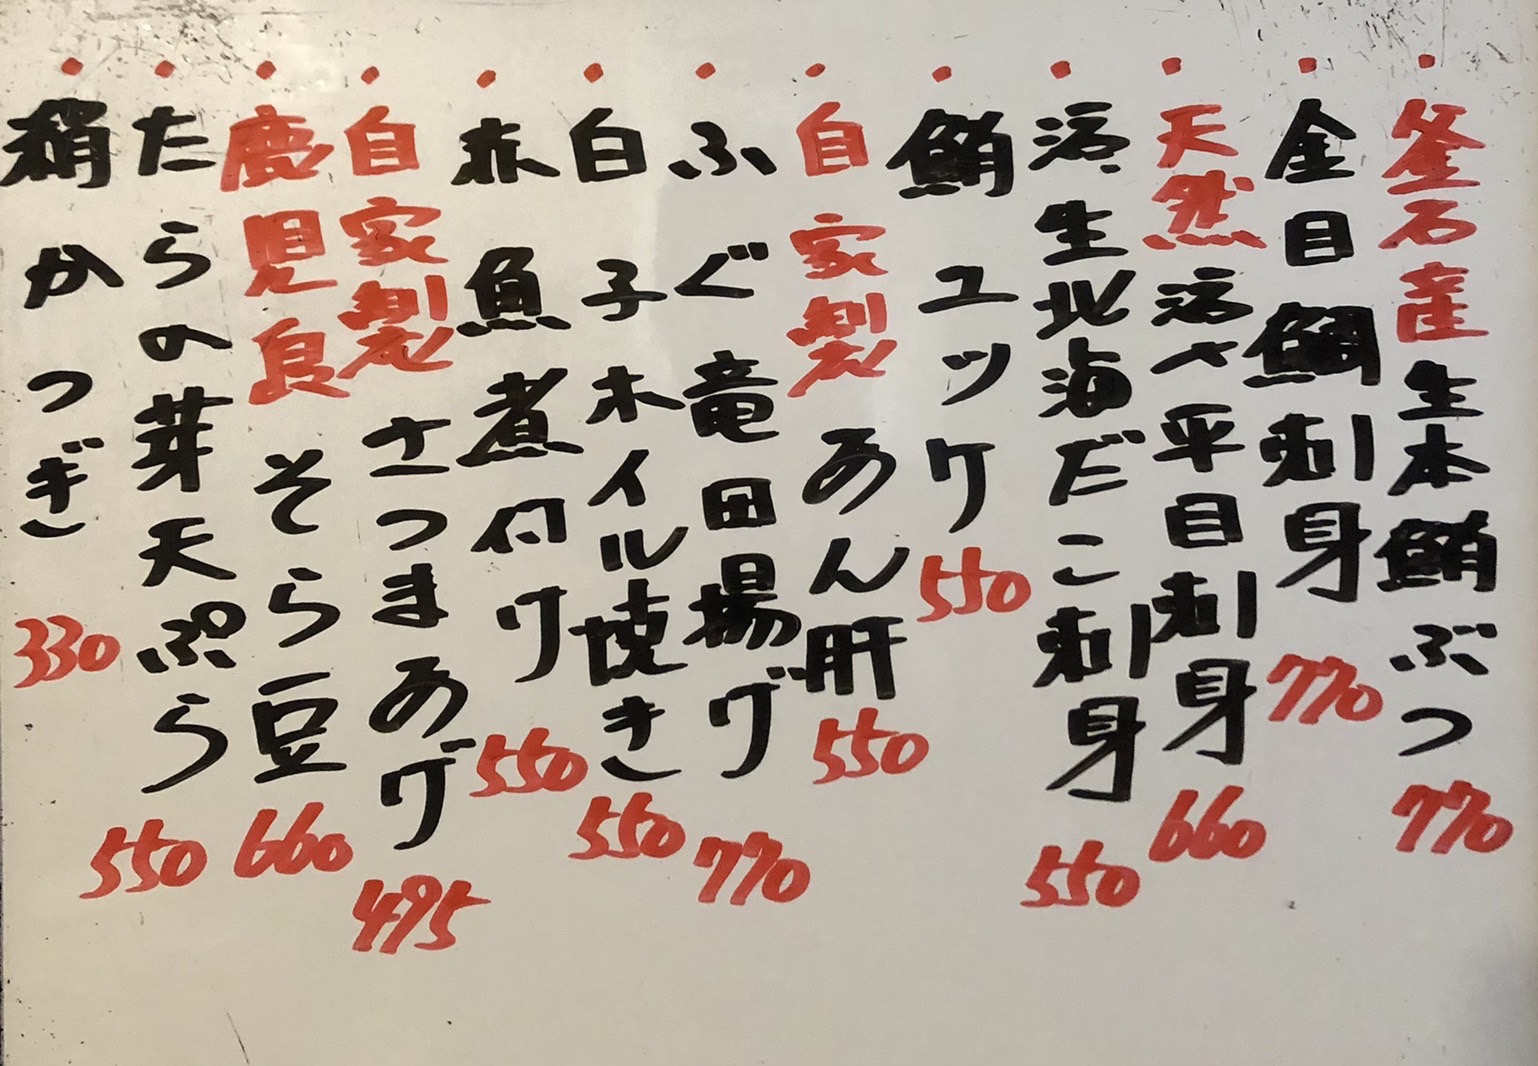 ・釜石産生本鮪ぶつ 770
・金目鯛刺身 770
・天然活〆平目刺身 660
・活生北海だこ刺身 550
・鮪ユッケ 550
・自家製あん肝 550
・ふぐ竜田揚げ 770
・白子ホイル焼き 550
・赤魚煮付け 550
・自家製さつまあげ 495
・鹿児島そら豆 660
・たらの芽天ぷら 550
・絹かつぎ 330